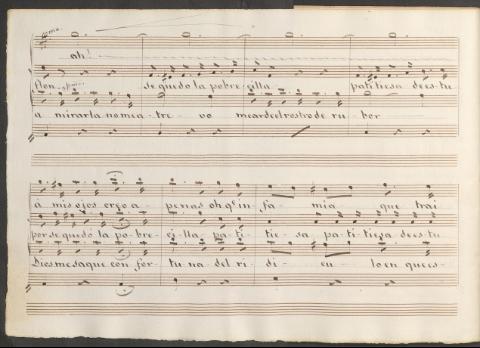 oh!
se quedo la pobrecilla patitiesa de estu
a mirarla no me atre vo me arde el rostro de rubor
á mis ojos creo apenas oh qe infamia que trai
por se quedo la pobrecilla patitiesa patitiesa de estu
Dios me saque con fortuna del ridiculo en que es